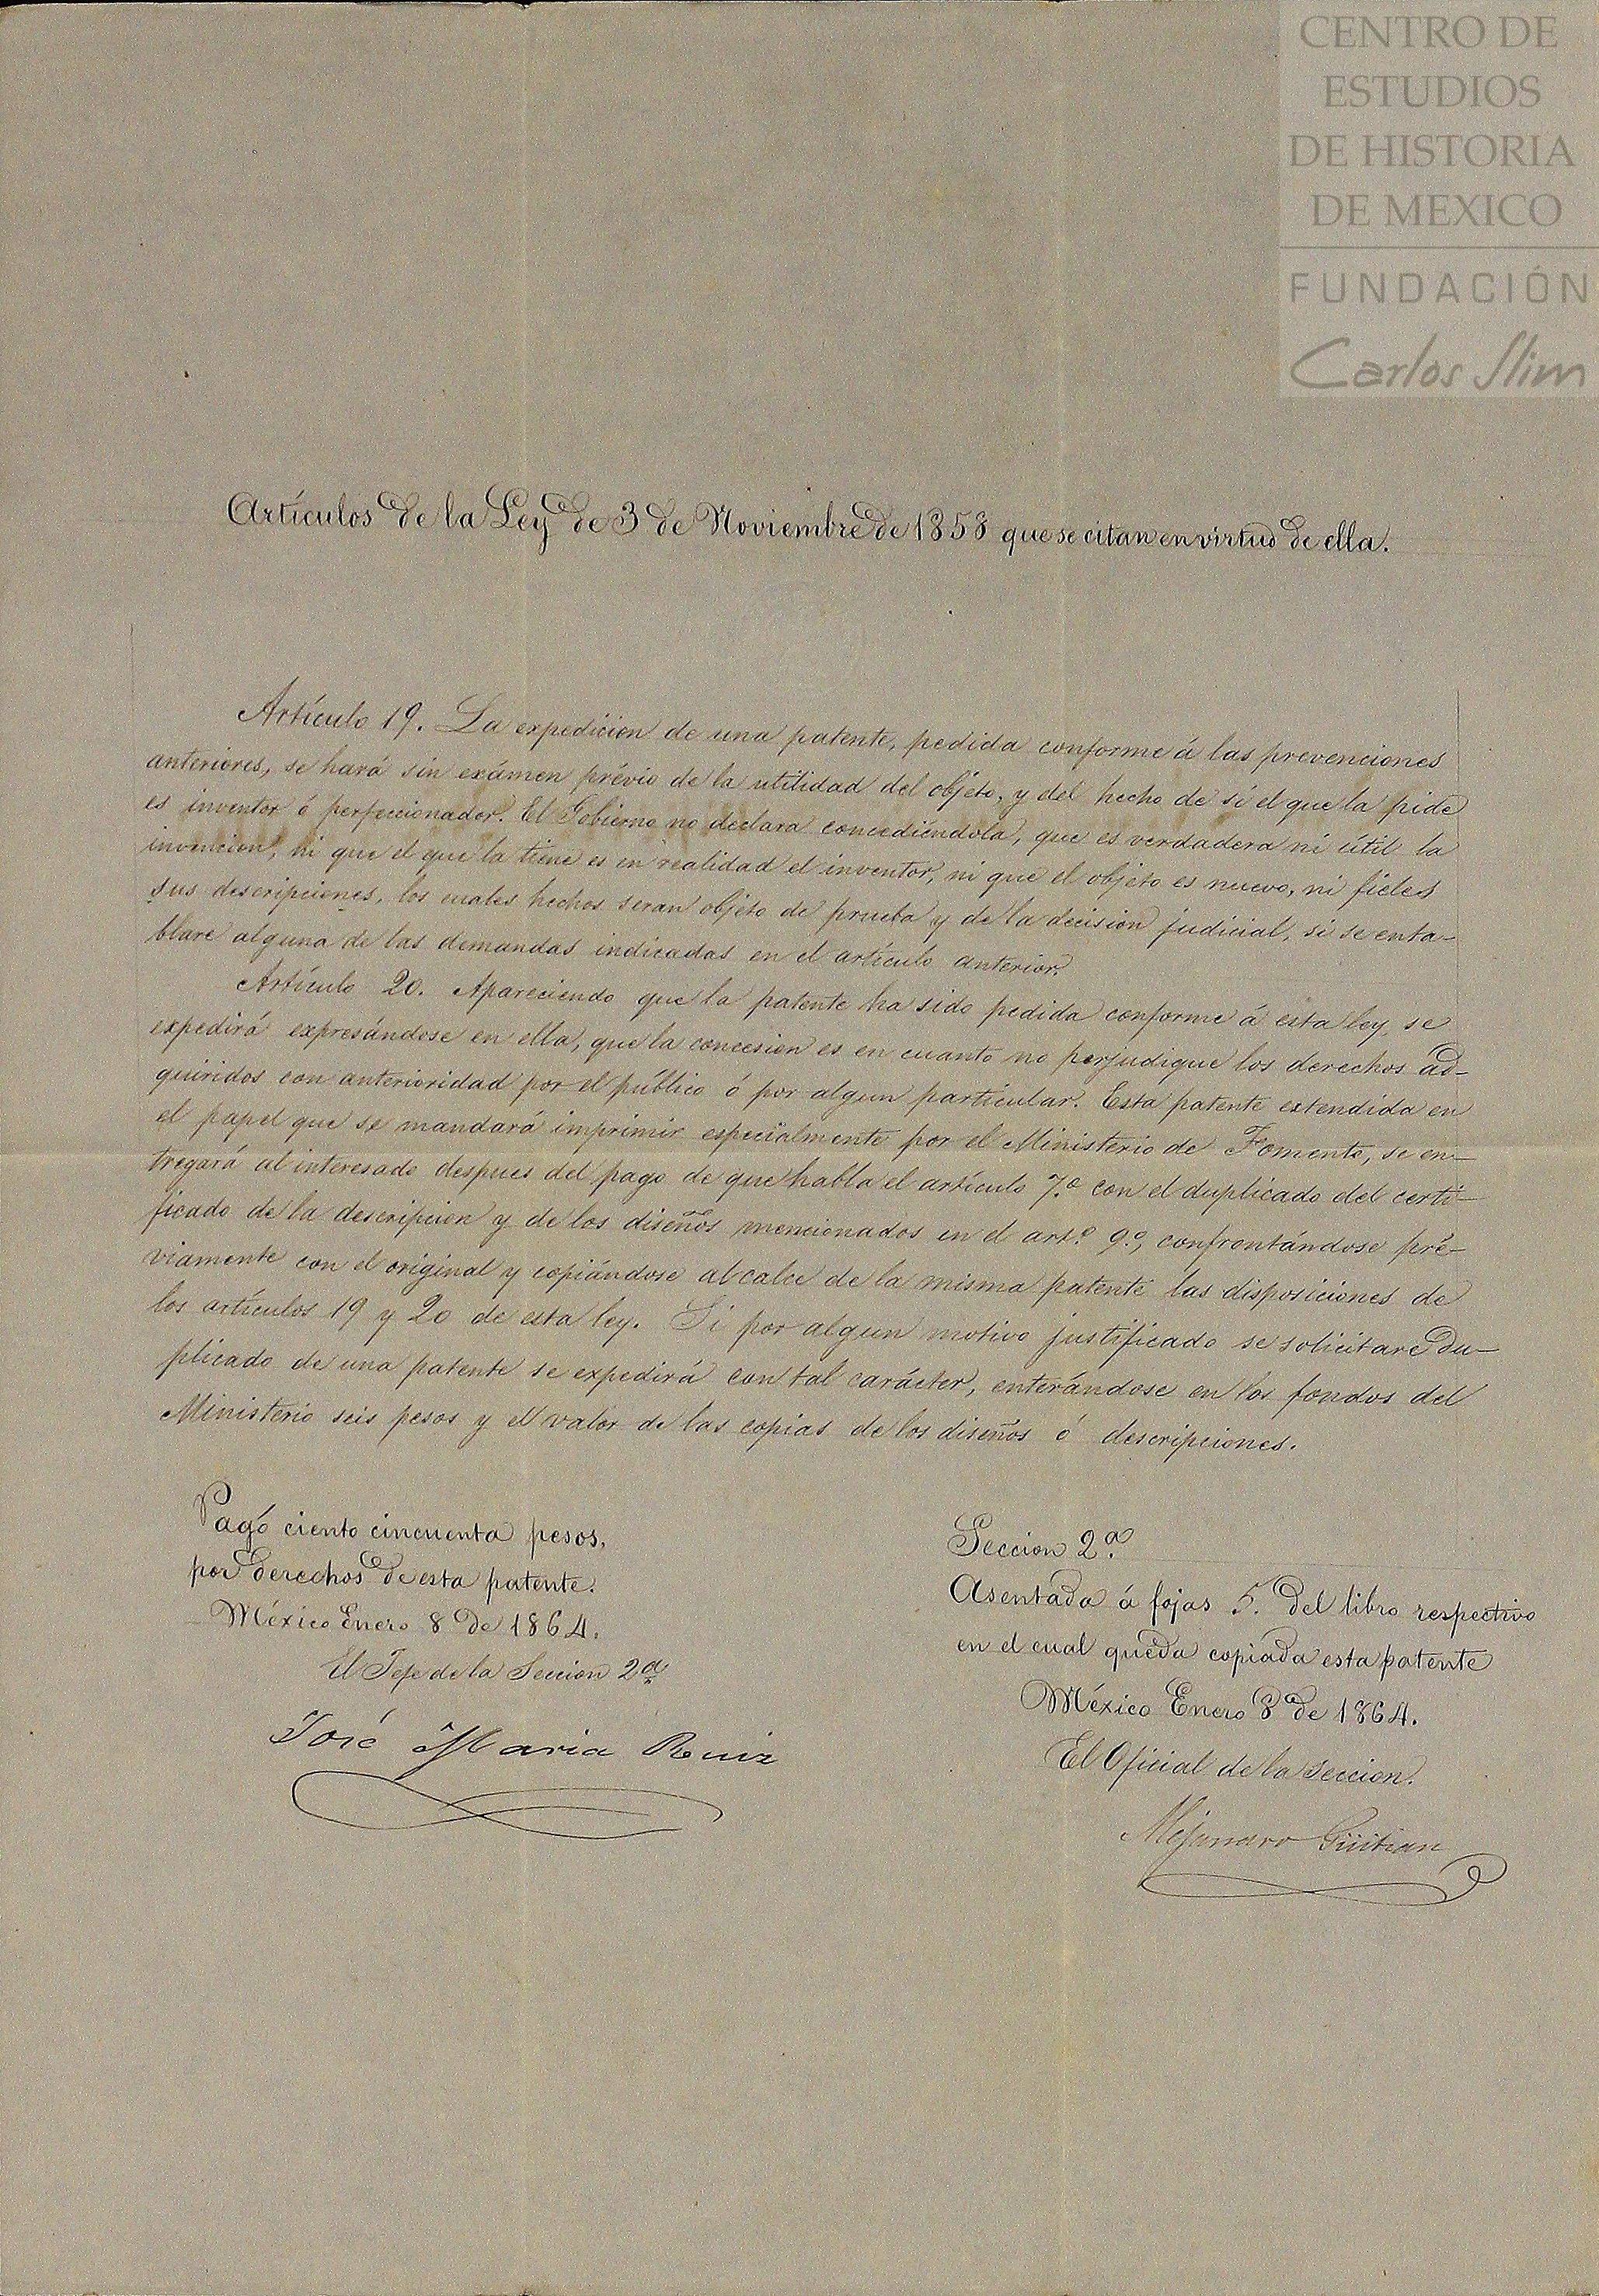 CENTRO DE
ESTUDIOS
DE HISTORIA
DE MEXICO
FUNDACIÓN
Carlos Slim
Artículos de la Ley de 3 de Noviembre de 1858 que se citan en virtud de ella.
Artículo 19. La expedicion de una patente, pedida conforme á las prevenciones
anteriores, se hará sin exámen prévio de la utilidad del objeto, y del hecho de si el que la pide
es inventor ó perfeccionador. El Gobierno no declara concediéndola, que es verdadera ni útil la
invencion, ni que el que la tiene es en realidad el inventor, ni que el objeto es nuevo, ni fieles
sus descripciones, los cuales hechos seran objeto de prueba y de la decision judicial, si se enta-
blare alguna de las demandas indicadas en el artículo anterior.
Artículo 20. Apareciendo que la patente ha sido pedida conforme á esta ley, se
expedirá expresándose en ella, que la concesion es en cuanto no perjudique los derechos ad-
quiridos con anterioridad por el público ó por algun particular. Esta patente extendida en
el papel que se mandará imprimir especialmente por el Ministerio de Fomento, se en-
tregará al interesado despues del pago de que habla el artículo 7.º con el duplicado del certi-
ficado de la descripcion y de los diseños mencionados en el art.º 9.º, confrontándose pré-
viamente con el original y copiándose al calce de la misma patente las disposiciones de
los artículos 19 y 20 de esta ley. Si por algun motivo justificado se solicitare du-
plicado de una patente se expedirá con tal carácter, enterándose en los fondos del
Ministerio seis pesos y el valor de las copias de los diseños ó descripciones.
Pagó ciento cincuenta pesos,
por derechos de esta patente.
México Enero 8 de 1864.
El Jefe de la Seccion 2ª
José Maria Ruiz
Seccion 2.ª
Asentada á fojas 5. del libro respectivo
en el cual queda copiada esta patente
México Enero 8 de 1864.
El Oficial de la seccion.
Güitian